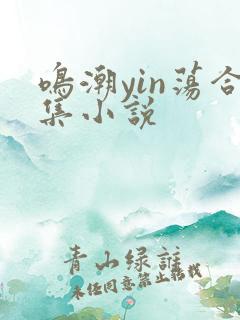 鸣潮yin荡合
集小说
青山绿谁
未任同意禁止转载